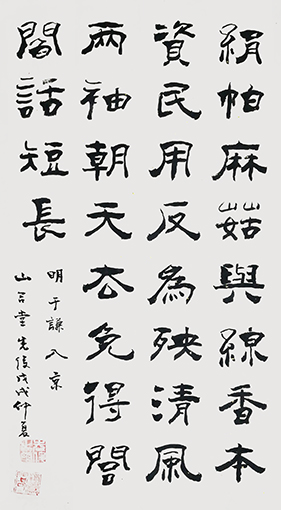 絹帕麻菇與線香本
資民用反為殃清風
兩袖朝天去免得閭
閻話短長
明于謙入京
山堂先戊戌仲夏